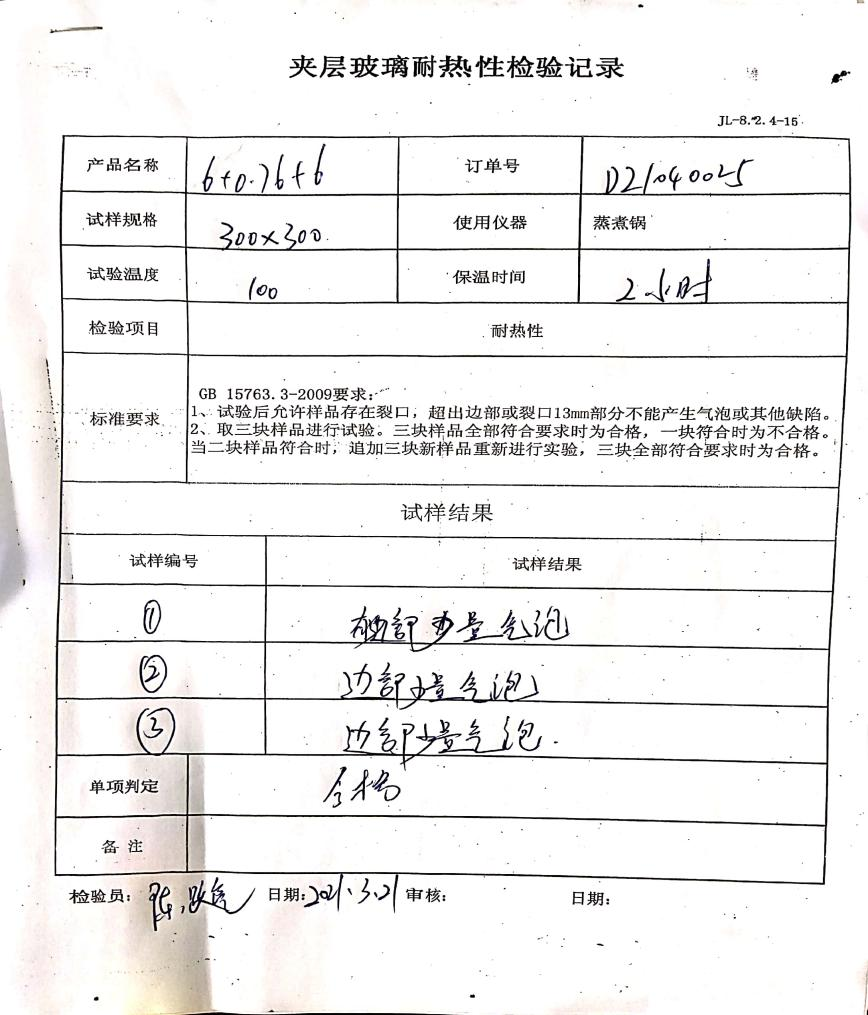 夹层玻璃耐热性检验记录
JL-8.2.4-15
产品名称 6+0.76+6 订单号 D21040025
试样规格 300×300 使用仪器 蒸煮锅
试验温度 100 保温时间 2小时
检验项目 耐热性
标准要求
GB 15763.3-2009要求：
1、试验后允许样品存在裂口，超出边部或裂口13mm部分不能产生气泡或其他缺陷。
2、取三块样品进行试验。三块样品全部符合要求时为合格，一块符合时为不合格。
当二块样品符合时，追加三块新样品重新进行实验，三块全部符合要求时为合格。
试样结果
试样编号 试样结果
① 部少量气泡
② 边部少量气泡
③ 边部少量气泡.
单项判定 合格
备注
检验员： 陈 日期：2021.3.21 审核： 日期：